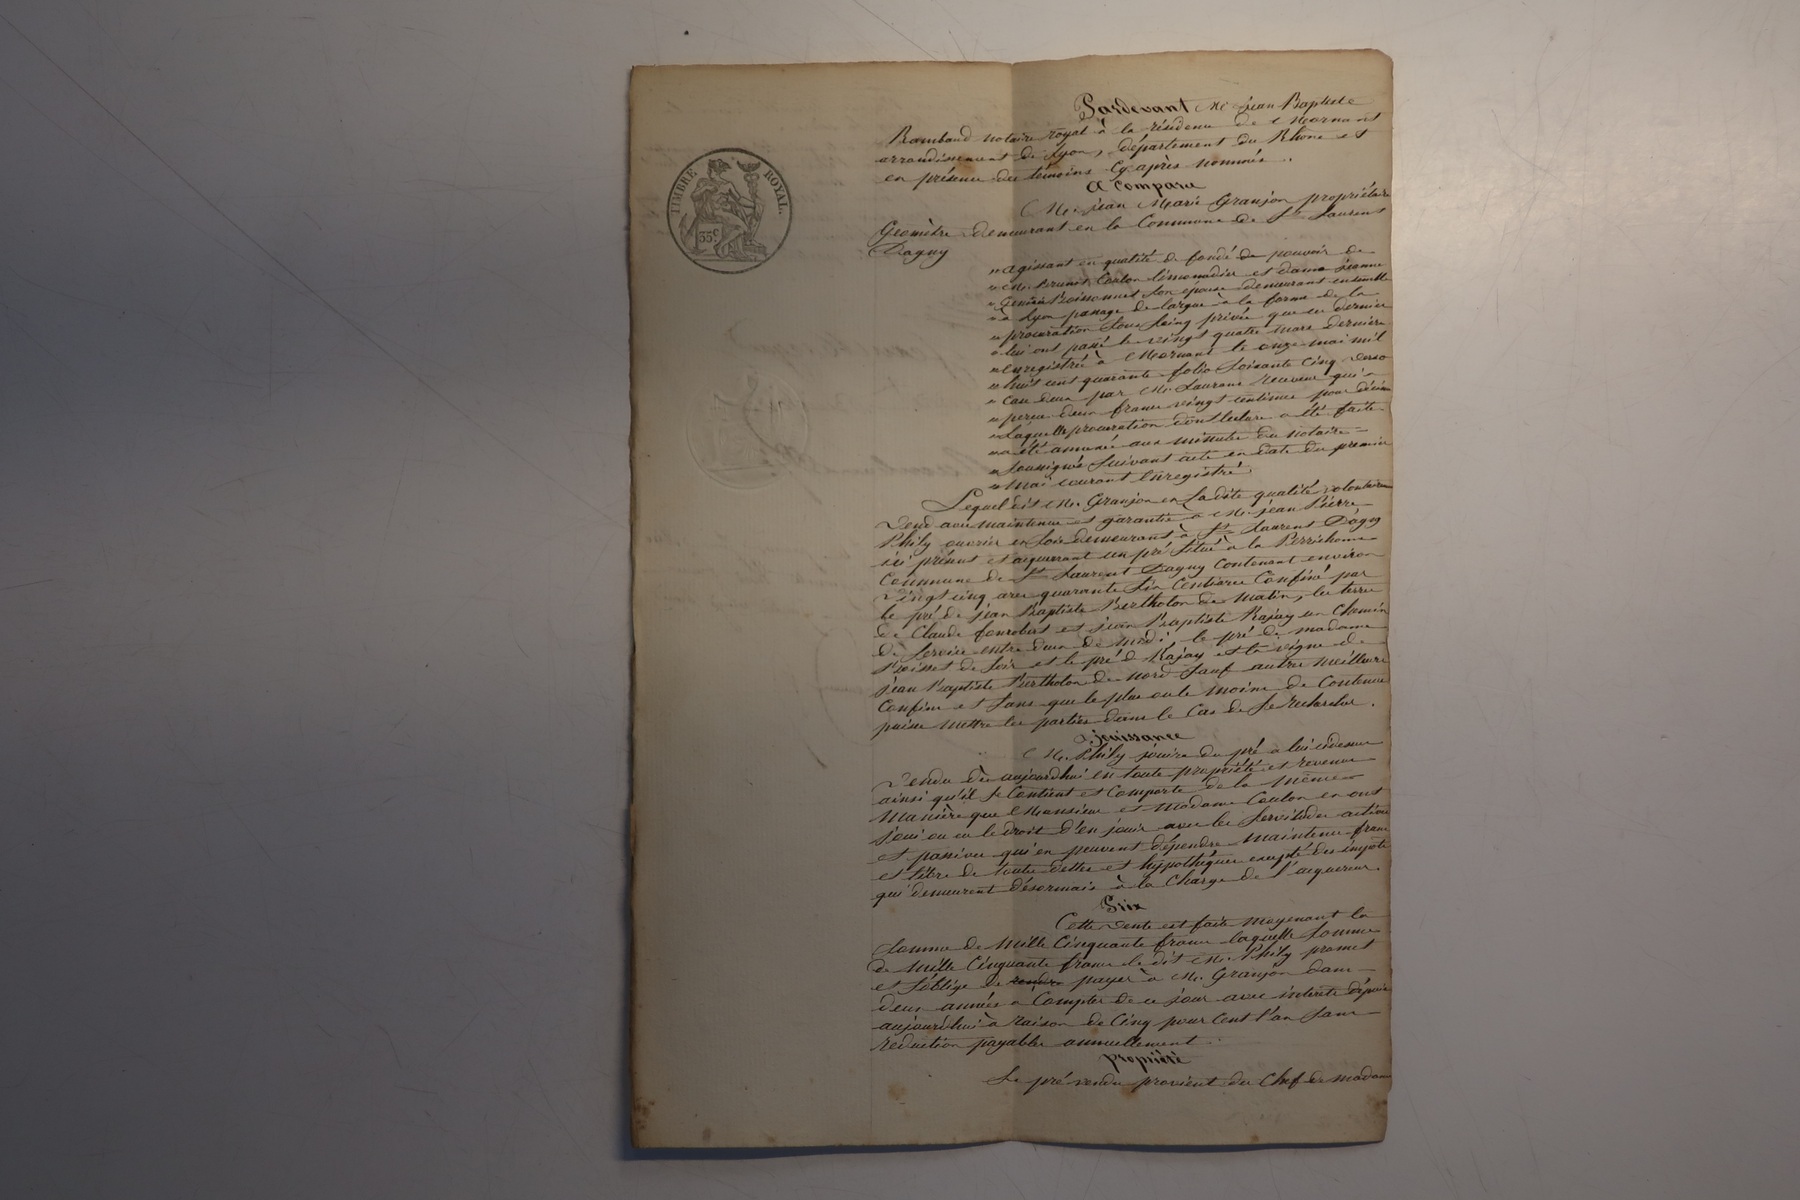 TIMBRE ROYAL.
35c.
Pardevant Me. jean Baptiste
Rambaud notaire royal à la résidence de Mornant
arrondissement de Lyon, département du Rhône et
en présence des témoins Cy après nommés.
A Comparu
Mr. jean Marie Granjon propriétaire
Géomètre demeurant en la Commune de St. Laurent
Dagny
" agissant en qualité de fondé de pouvoir de
" Mr. Coulon limonadier et dame jeanne
" son épouse demeurant ensemble
" à Lyon passage de à la forme de la
" procuration sous seing privée que ces derniers
" lui ont passé le vingt quatre mars dernier
" enregistré à Mornant le onze mai mil
" huit cent quarante folio soixante cinq verso
" case deux par Mr. Laurans receveur qui a
" perçu deux francs vingt centimes pour décime
" Laquelle procuration dont lecture a été faite
" a été annexée aux minutes du notaire
" soussigné suivant acte en date du premier
" mai courant Enregistré.
Lequel dit Mr. Granjon en La dite qualité volontaire
vend avec maintenue et garantie à Mr. jean Pierre
Phily ouvrier en soie demeurant à St. Laurent Dagny
ici présent et acquerant un pré Situé à la
Commune de St. Laurent Dagny contenant environ
vingt cinq ares quarante Six Centiares Confiné par
le pré de jean Baptiste Bertholon de Matin, les terres
de Claude et jean Baptiste Rajay un Chemin
de Service entre deux de midi, le pré de madame
de Soir et le pré d Rajay et la vigne de
jean Baptiste Bertholon de nord Sauf autres meilleurs
Confins et Sans que le plus ou le moins de Contenue
puisse mettre les parties dans le Cas de Se rechercher.
jouissance
Mr. Phily jouira du pré a lui cidessus
vendu dès aujourdhui en toute propriété et revenus
ainsi qu'il Se Contient et Comporte de la même
Manière que Monsieur et Madame Coulon en ont
joui ou eu le droit d'en jouir avec les Servitudes actives
et passives qui en peuvent dépendre Maintenu franc
et libre de toutes dettes et hypothèques excepté des impôts
qui demeurent désormais à la Charge de l'acquereur.
Prix
Cette vente est faite Moyenant la
Somme de Mille Cinquante francs laquelle Somme
de Mille Cinquante francs le dit Mr. Phily promet
et S'oblige de rendre payer à Mr. Granjon dans
deux années à Compter de ce jour avec intérêts depuis
aujourdhui à raison de Cinq pour Cent l'an Sans
réduction payables annuellement.
propriété
Le pré vendu provient du Chef de madame